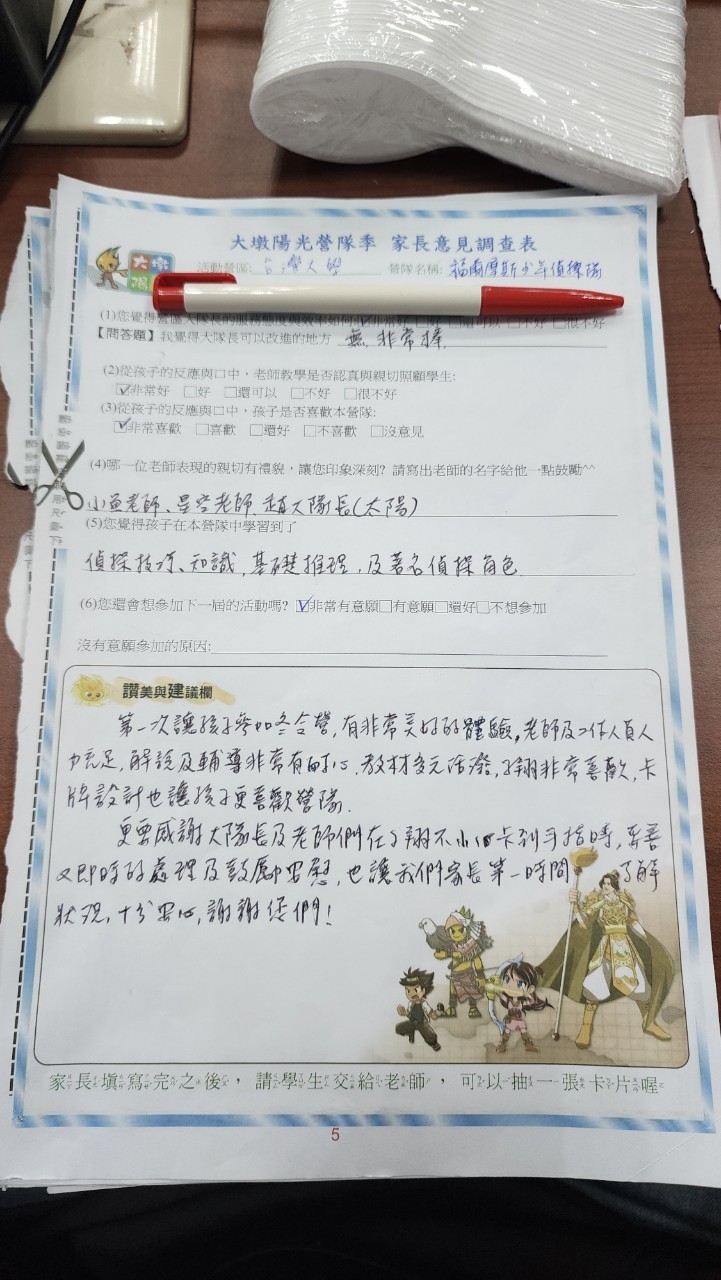 大墩陽光營隊季 家長意見調查表
大墩
陽
活動營區: 台灣大學 營隊名稱: 福爾摩斯少年偵探隊
(1)您覺得營區大隊長的服務態度與效率如何 ☑非常好 □好 □還可以 □不好 □很不好
【問答題】我覺得大隊長可以改進的地方 無,非常棒.
(2)從孩子的反應與口中，老師教學是否認真與親切照顧學生:
☑非常好 □好 □還可以 □不好 □很不好
(3)從孩子的反應與口中，孩子是否喜歡本營隊:
☑非常喜歡 □喜歡 □還好 □不喜歡 □沒意見
(4)哪一位老師表現的親切有禮貌，讓您印象深刻? 請寫出老師的名字給他一點鼓勵^^
小魚老師、星空老師、趙大隊長(太陽)
(5)您覺得孩子在本營隊中學習到了
偵探技巧、知識,基礎推理,及著名偵探角色.
(6)您還會想參加下一屆的活動嗎? ☑非常有意願□有意願□還好□不想參加
沒有意願參加的原因:
讚美與建議欄
第一次讓孩子參加冬令營,有非常美好的體驗。老師及工作人員人
力充足,解說及輔導非常有耐心,教材多元活潑,子翔非常喜歡,卡
牌設計也讓孩子更喜歡營隊.
更要感謝大隊長及老師們在子翔不小心卡到手指時,妥善
又即時的處理及鼓勵安慰,也讓我們家長第一時間 了解
狀況,十分安心,謝謝您們!
家長填寫完之後，請學生交給老師，可以抽一張卡片喔
5